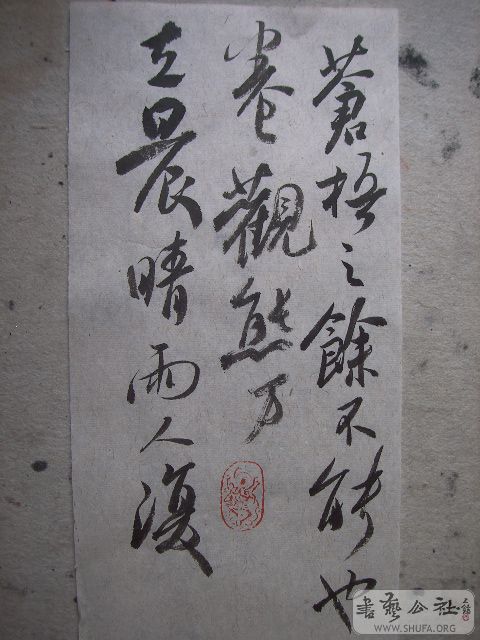 蒼梧之餘不能也
卷觀熊万
立晨晴雨人復
書藝公社
WWW.SHUFA.ORG